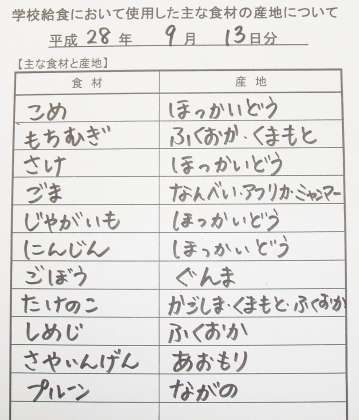 学校給食において使用した主な食材の産地について
平成 28 年 9 月 13 日分
【主な食材と産地】
食 材 産 地
こめ ほっかいどう
もちむぎ ふくおか・くまもと
さけ ほっかいどう
ごま なんべい・アフリカ・ミャンマー
じゃがいも ほっかいどう
にんじん ほっかいどう
ごぼう ぐんま
たけのこ かごしま・くまもと・ふくおか
しめじ ふくおか
さやいんげん あおもり
プルーン ながの